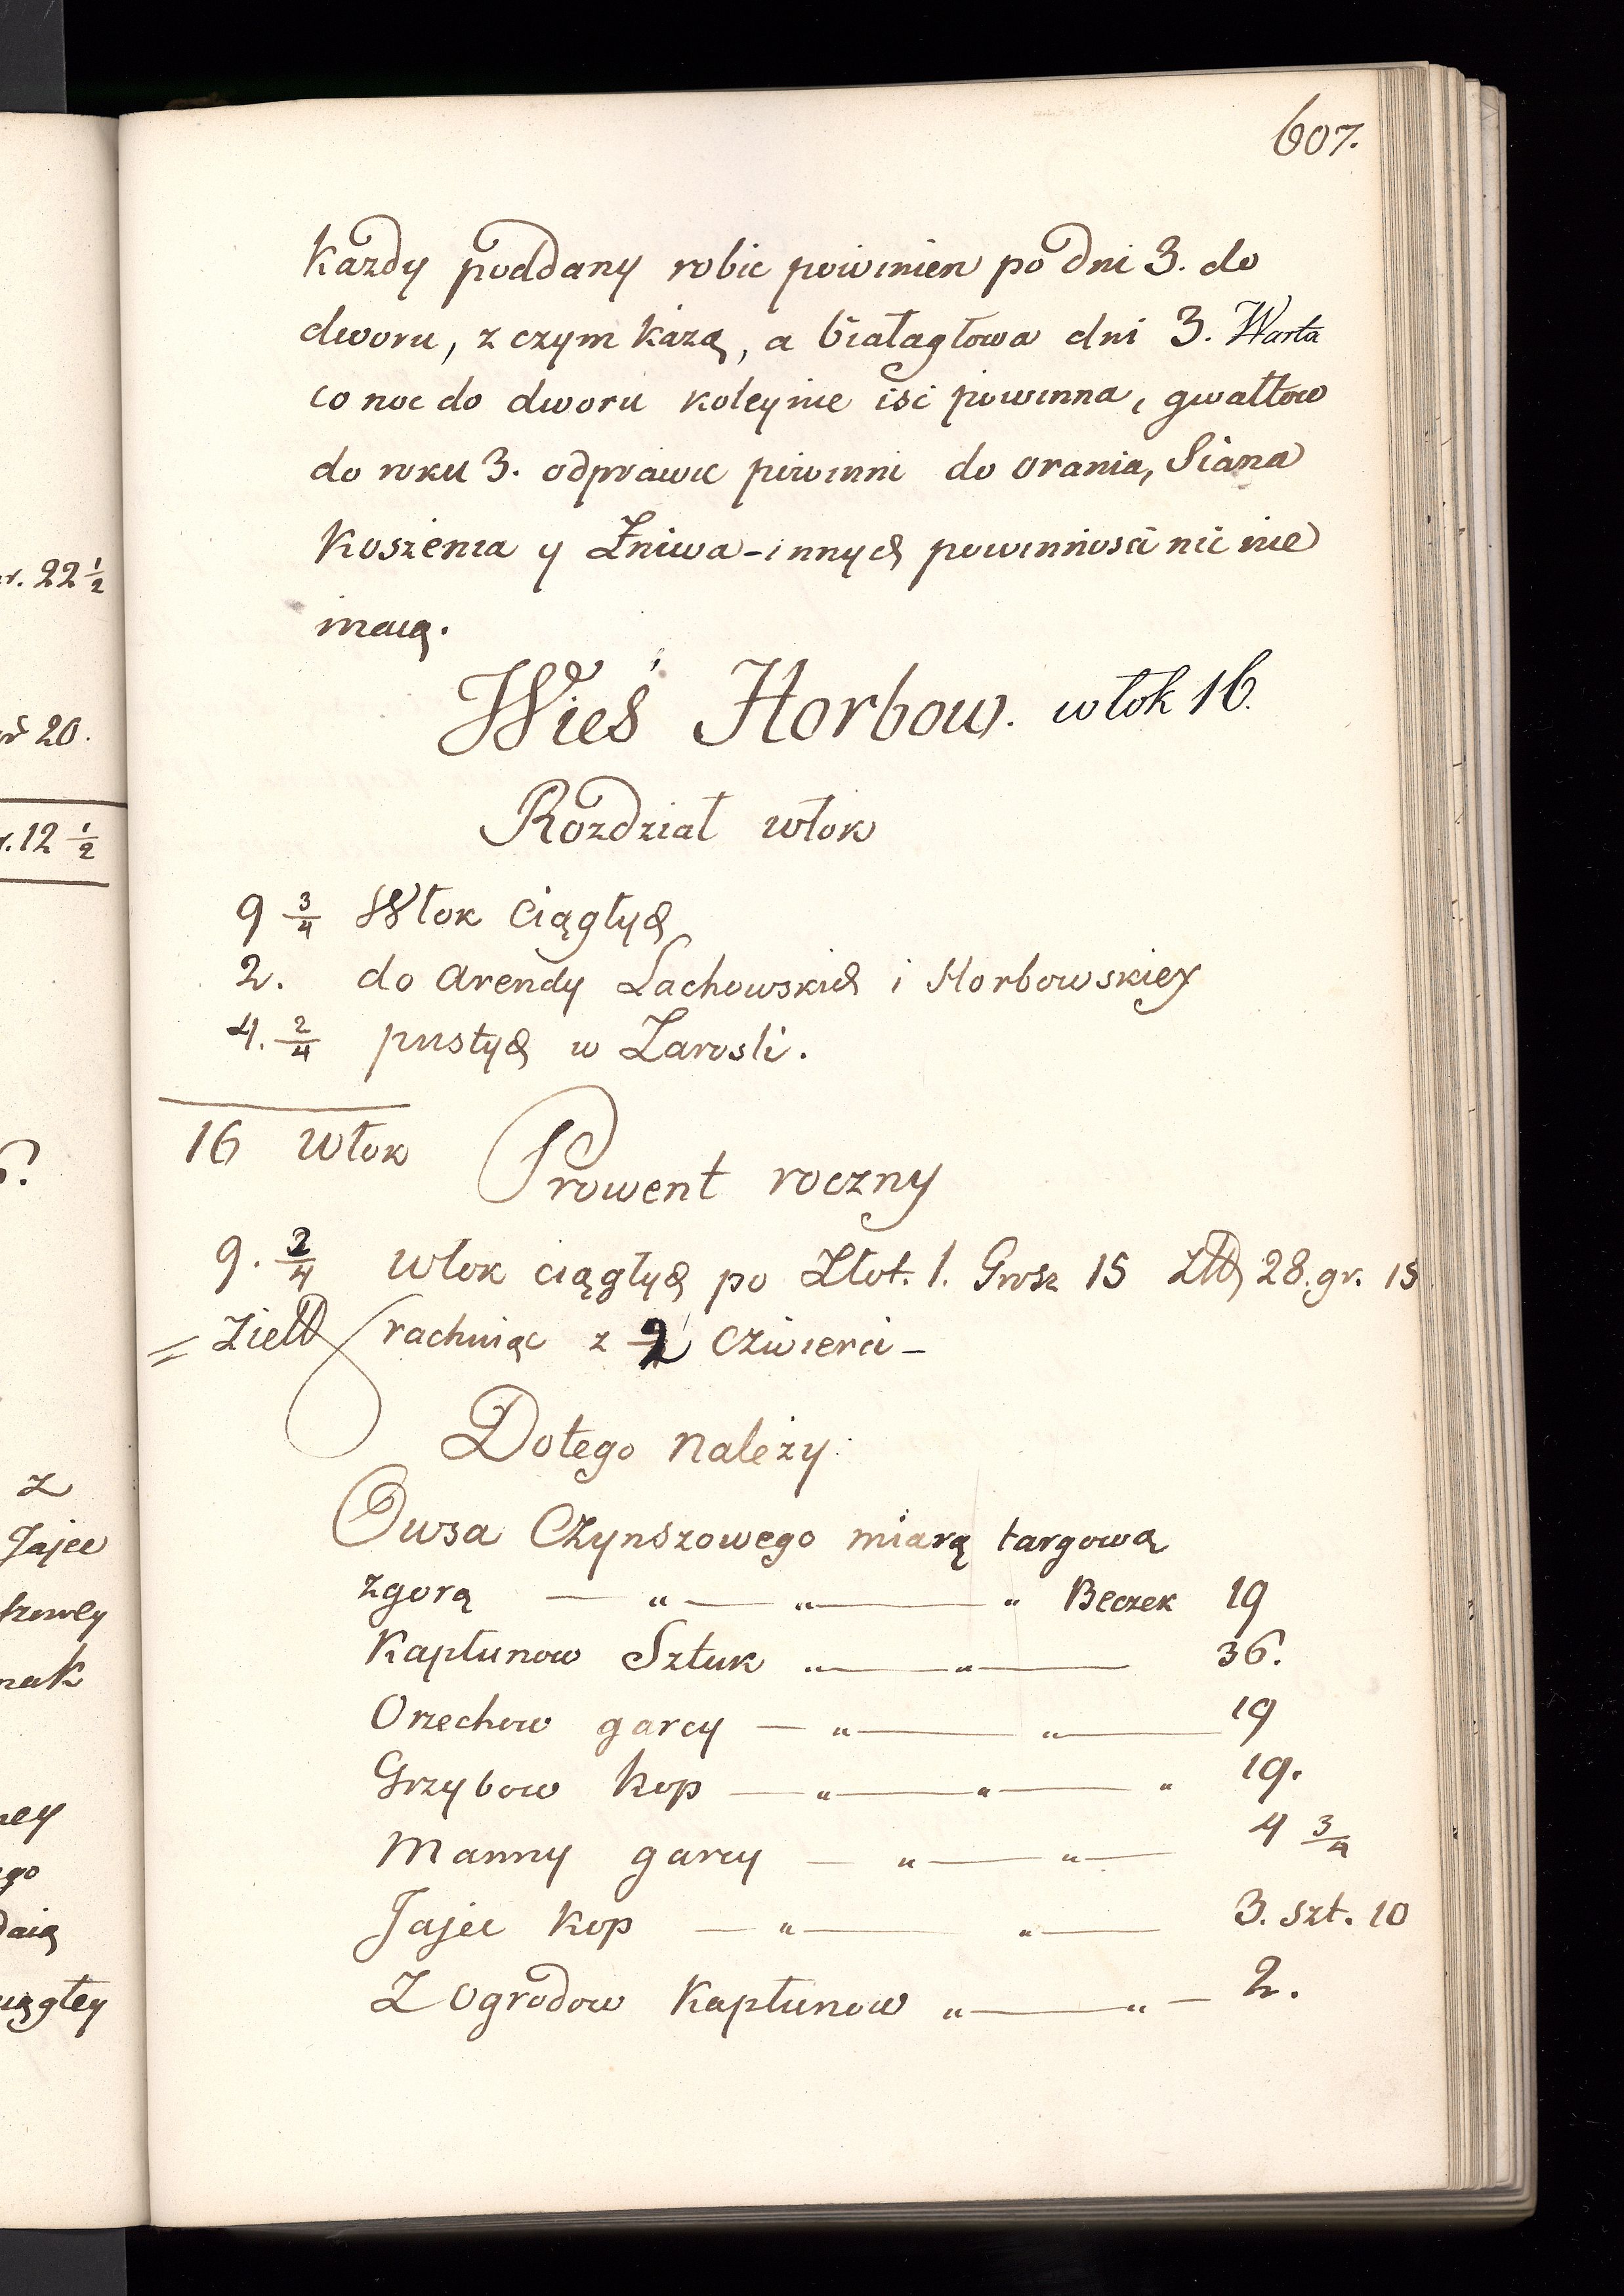 607.
Kazdy poddany robic powinien po dni 3. do
dworu, z czym kazą, a białagłowa dni 3. Warta
co noc do dworu koleynie isć powinna, gwałtow
do roku 3. odprawić powinni do orania, Siana
koszenia y Żniwa - innych powinności nic nie
maią.
Wieś Horbow. włok 16.
Rozdział włok
9 3/4 Włok ciągłych
2. do Arendy Lachowskich i Horbowskiey
4. 2/4 pustych w Zarosli.
16 Włok
Prowent roczny
9. 2/4 włok ciągłych po Złot. 1. Grosz 15 Złł 28. gr. 15
= rachuiąc z 2 czwierci -
Dotego należy:
Owsa Czynszowego miarą targową
zgorą — „ — „ — „ Beczek 19
Kapłunow Sztuk „ — „ — 36.
Orzechow garcy — „ — „ — 19
Grzybow kop — „ — „ — „ 19.
Manny garcy — „ — „ — 4 3/4
Jajec kop — „ — „ — 3. szt. 10
Z Ogrodow Kapłunow „ — „ — 2.
r. 22 1/2
20.
r. 12 1/2
z
Jajec